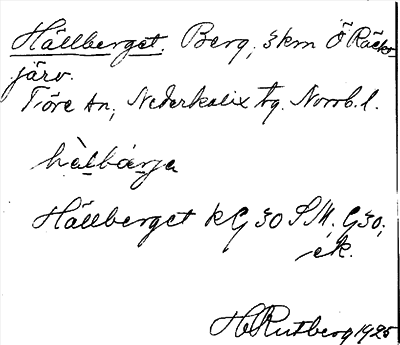 Hällberget. Berg, 3km Ö Räck-
järv.
Töre sn, Nederkalix tg. Norrb. l.
hàlbárja
Hällberget kG 30 SM, G30,
ek.
H Rutberg 1925